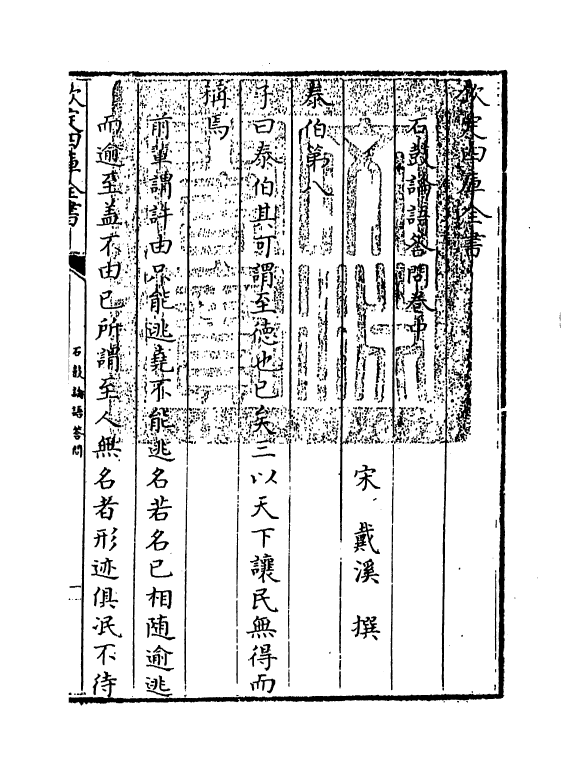 欽定四庫全書
石鼓論語答問卷中
宋 戴溪 撰
泰伯第八
子曰泰伯其可謂至德也已矣三以天下讓民無得而
稱焉
前輩謂許由只能逃堯不能逃名若名已相隨逾逃
而逾至蓋不由已所謂至人無名者形迹俱泯不待
欽定四庫全書
石鼓論語答問
一